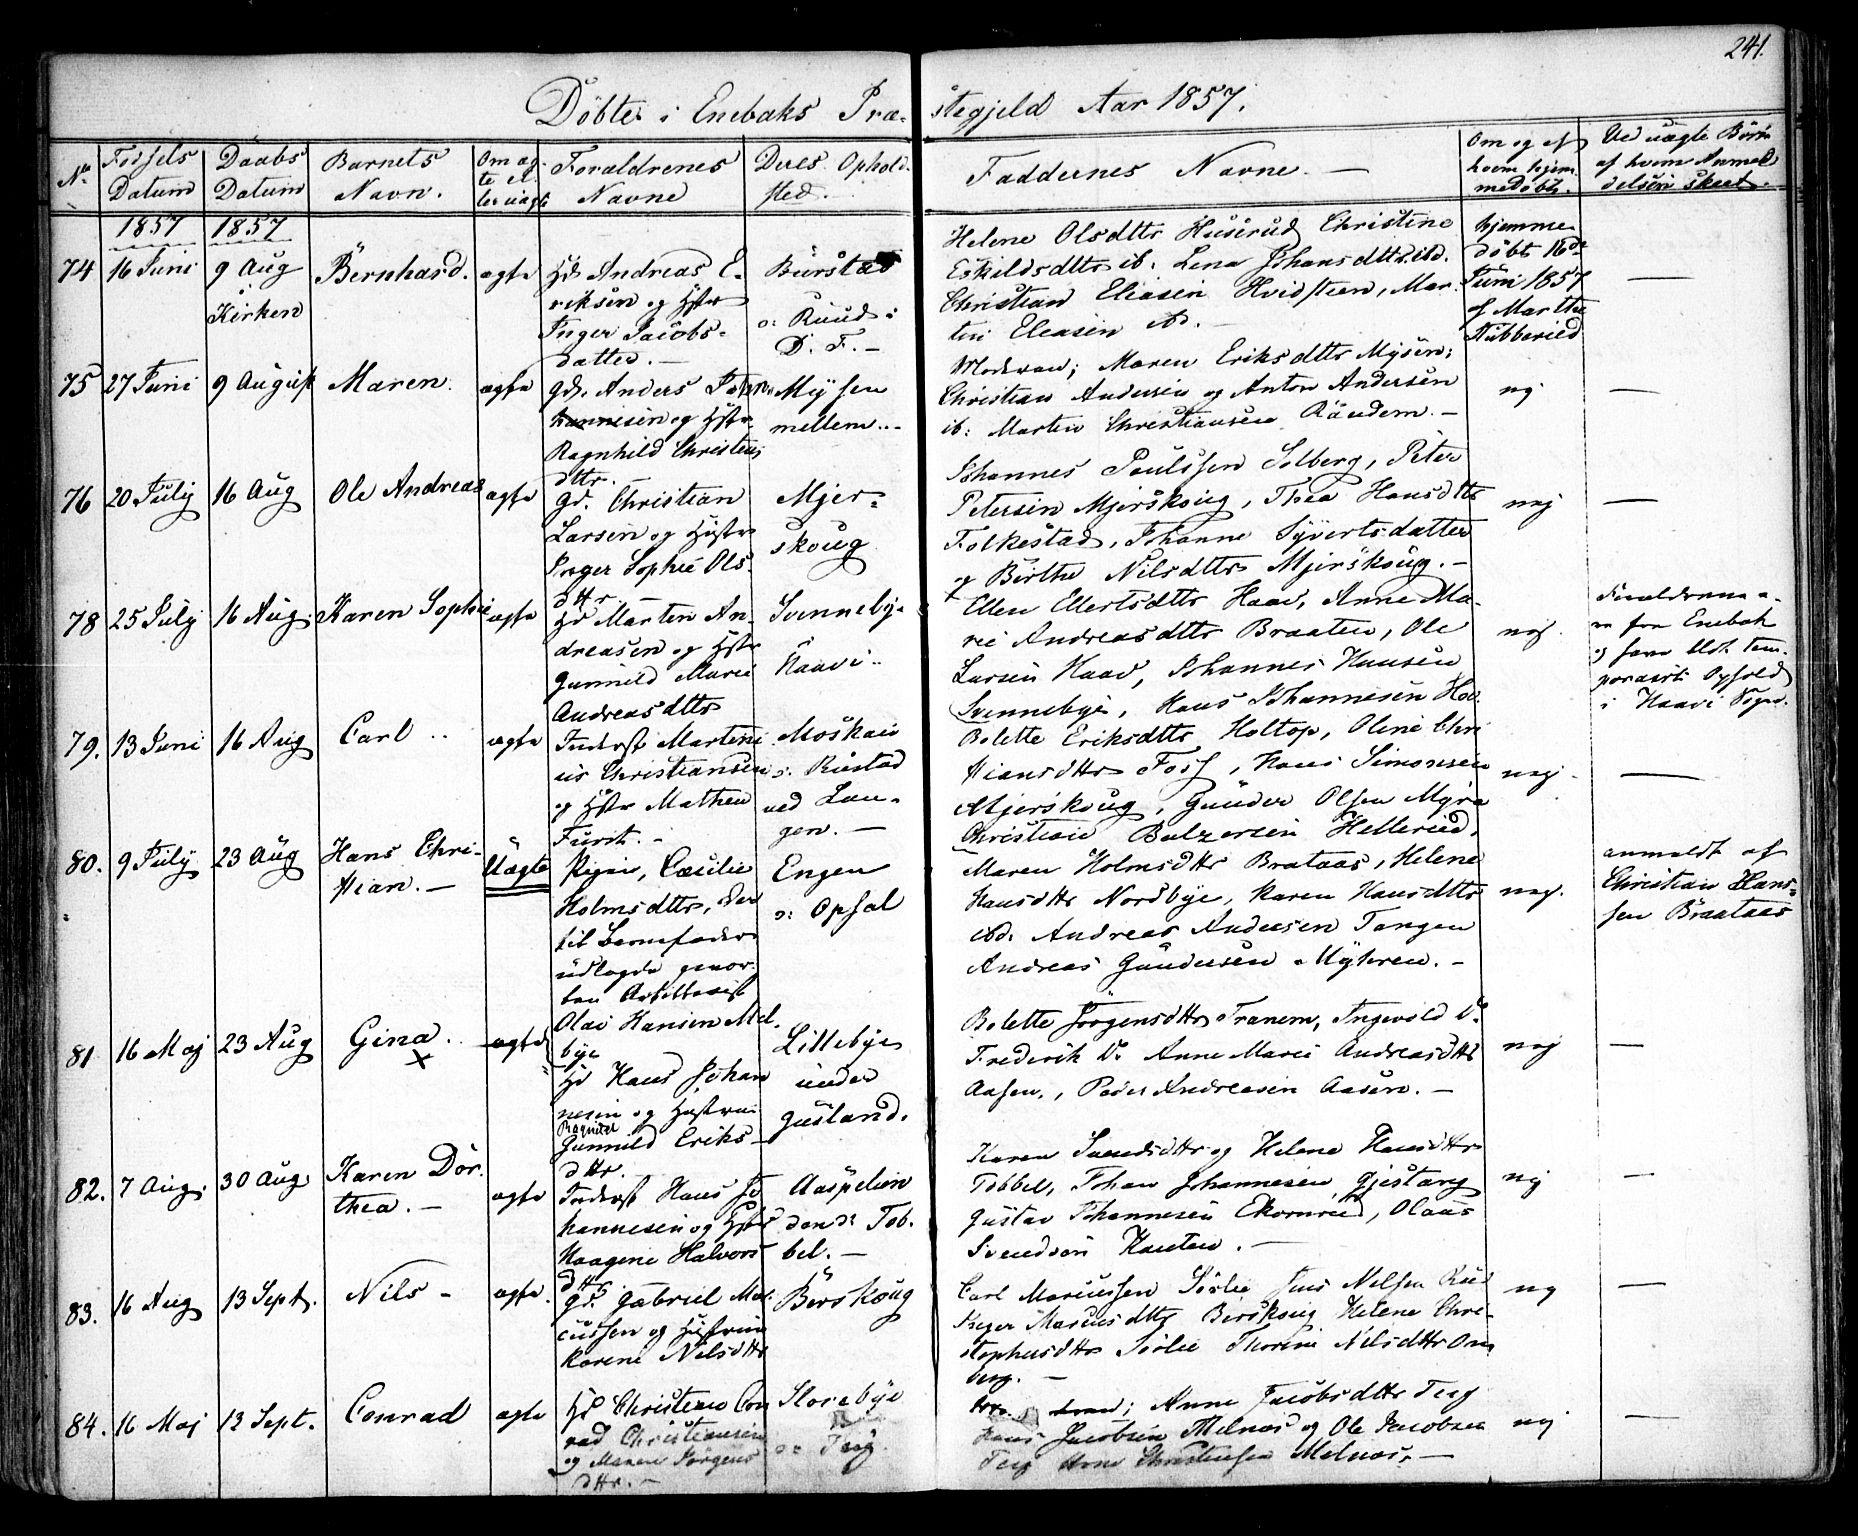 241.
Döbte i Enebaks Præ- stegjeld Aar 1857.
No Fødsels Datum Daabs Datum Barnets Navn. Om ægte el. uægte Forældrenes Navne Deres Ophold sted. Faddernes Navne. — Om og af hvem hjemmedøbt. Ved uægte Børn af hvem Anmeldelsen skeet.
1857 1857
74 16 Juni 9 Aug i Kirken Bernhard. ægte
Hd. Andreas E-
riksen og Hstr
Inger Jacobs-
datter. —
Burstad
o: Ruud i
D. F. —
Helene Olsdttr Huserud Christine
Eskildsdttr ib. Lena Johansdttr ibd.
Christian Eliasen Hvidsteen, Mar-
tin Eliasen ibd. —
hjemme-
döbt 16de
Juni 1857
af Marthe
Stubberud
—
75 27 Juni 9 August Maren. ægte
Gd. Anders
og Hstr
Ragnhild Christens
dttr.
Mysen
mellem
Moderen; Maren Eriksdttr Mysen;
Christian Andersen og Anton Andersen
ib: Martin Christiansen —
nej
—
76 20 July 16 Aug Ole Andreas ægte
Gd. Christian
Larsen og Hstr
Inger Sophie Ols-
dttr
Mjer-
skoug
Johannes Paulssen Solberg, Peter
Petersen Mjerskoug, Thea Hansdttr
Folkestad, Johanne Syvertsdatter
og Berthe Nilsdttr Mjerskoug. —
nej
—
78 25 July 16 Aug. Karen Sophie ægte
Hd Marten An-
dreasen og Hstr
Gunnild Marie
Andreasdttr
Svennebye
Haavi
Ellen Ellertsdttr Haav, Anne Ma-
rie Andreasdttr Braaten, Ole
Larsen Haav, Johannes Hansen
Svennebye, Hans Johannesen
nej.
Forældrene e-
re fra Enebak
og have blot tem-
porairt Ophold
i Haavi Sogn.
79. 13 Juni 16 Aug Carl ægte
Inderst Martini-
us Christiansen
og Hstr Mathea
Furst. —
Moskau
o: Rustad
ved Lan-
gen. —
Bolette Eriksdttr Holtop, Oline Chri
stiansdttr Foss, Hans Simonsen
Mjerskoug, Gunder Olsen Myra
Christian Balzersen Hellerud.
nej.
—
80. 9 July 23 Aug Hans Chri-
stian. — Uægte
Pigen, Cæcilie
Holmsdttr, Den
til Barnefader
udlagde
Olai Hansen Mel-
bye
Engen
o: Opsal
Maren Holmsdttr Brataas, Helene
Hansdttr Nordbye, Karen Hansdttr
ibd. Andreas Andersen Tangen
Andreas Gundersen Myhren. —
nej.
anmeldt af
Christian Hans-
sen Braataas
81 16 Maj 23 Aug Gina. ægte
Hd Hans Johan
nesen og Hustru
Ragnild
Gunnild Eriks-
dttr.
Lillebye
under
Gusland.
Bolette Jörgensdttr Tranem, Ingevold Do
Frederik Do Anne Marie Andreasdttr
Aasen., Peder Andreasen Aasen. —
nej
—
82. 7 Aug. 30 Aug Karen Dor-
thea. — ægte
Inderst Hans Jo
hannesen og Hstr
Haagene Halvors
dttr
Aaspelien
den o: Tob-
bel. —
Karen Svendsdttr og Helene Hansdttr
Tobbel, Johan Johannesen Gjestang
Gustav Johannesen Ekornrud, Olaus
Svendsen Kanten. —
nej
—
83. 16 Aug 13 Sept. Nils — ægte.
Gd. Gabriel Mar-
cussen og Hustru
Karene Nilsdttr
Berskoug
Carl Marcussen Sörlie Jens Nilsen Rud
Inger Marcusdttr Berskoug Helene Chri-
stophersdttr Sörlie Thorine Nilsdttr Om
berg. —
nej
—
84. 16 Maj 13 Sept. Conrad ægte
Hd Christian Con
rad Christiansen
og Maren Jörgens
dttr. —
Storebye
o: Teig.
Anne Jacobsdttr Teig
Hans Jacobsen Melnæs og Ole Jacobsen
Teig Arne Christensen Melnæs. —
nej
—